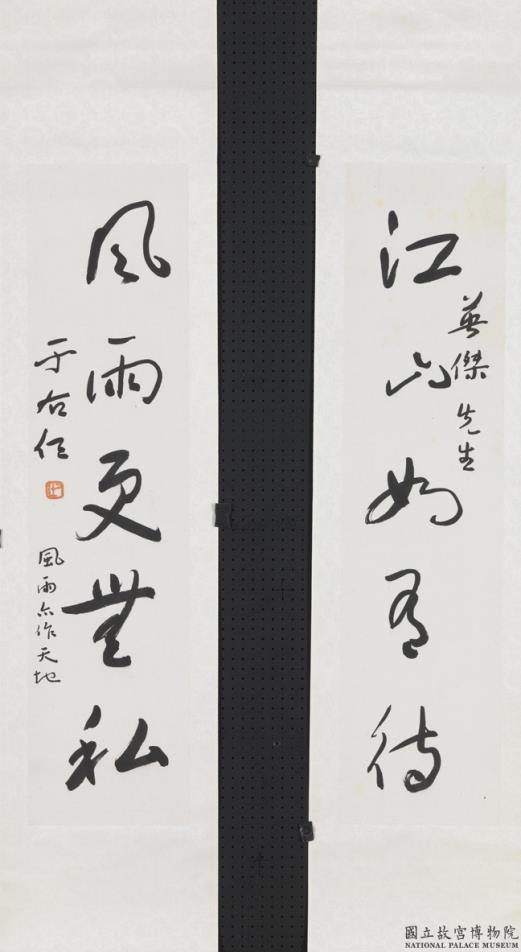 英傑先生
江山如有待
風雨更無私
于右任
風雨亦作天地
國立故宮博物院
NATIONAL PALACE MUSEUM